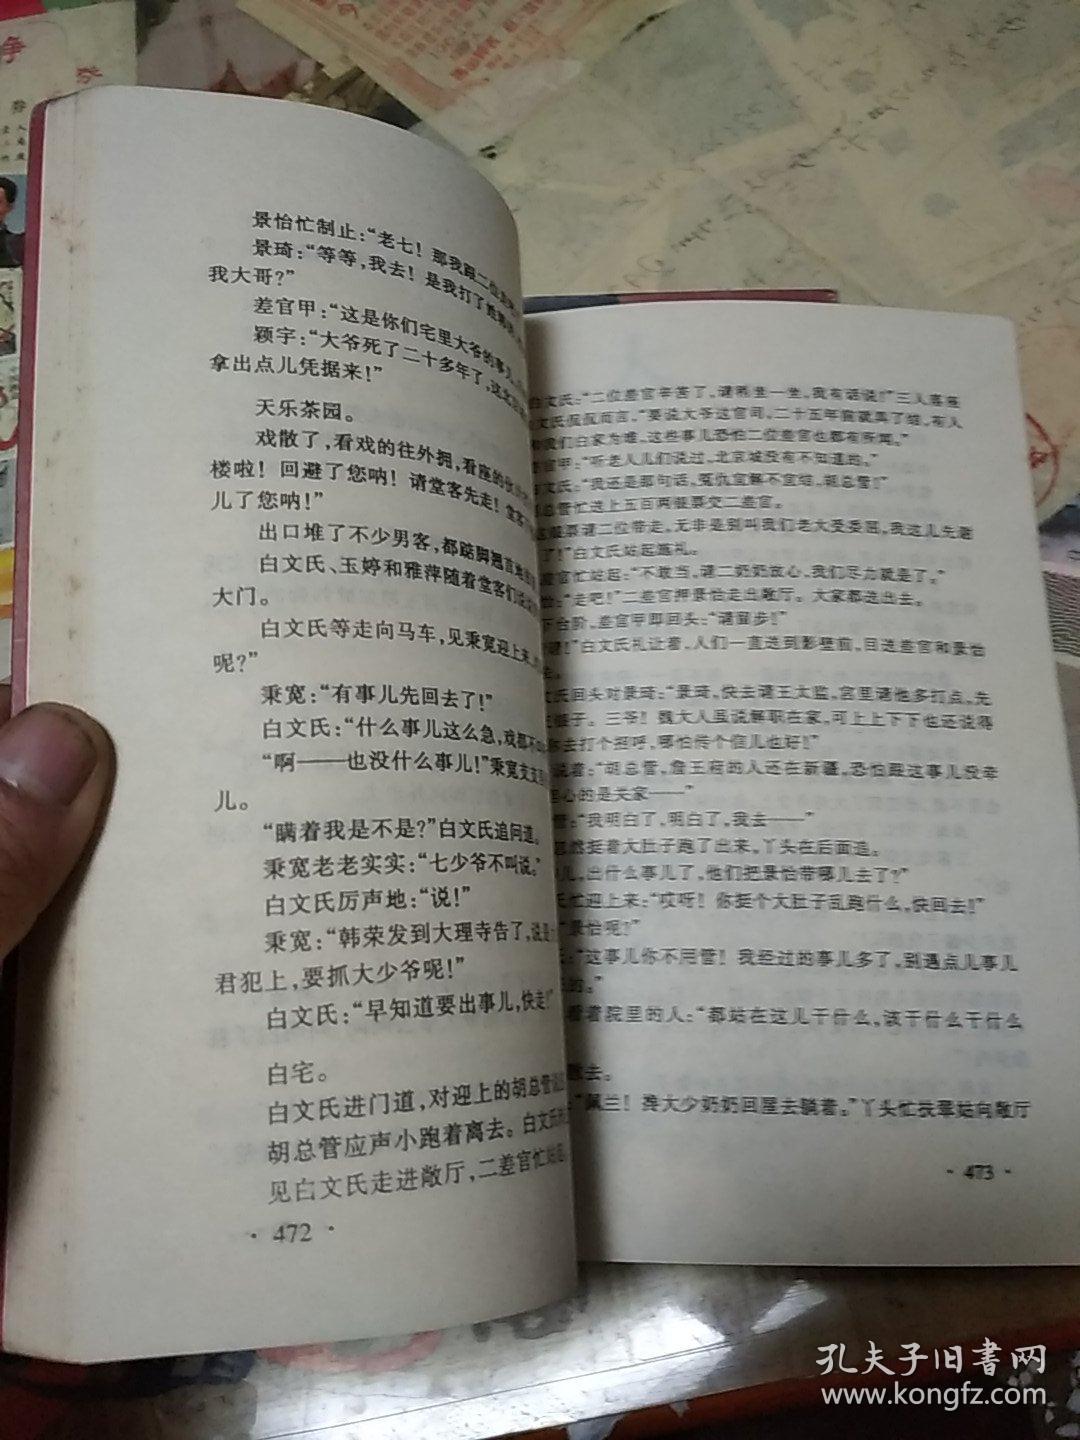 景怡忙制止：“老七！那我跟二位
景琦：“等等，我去！是我打了
我大哥？”
差官甲：“这是你们宅里大爷的事儿，
颖宇：“大爷死了二十多年了，这
拿出点儿凭据来！”
天乐茶园。
戏散了，看戏的往外拥，看座的伙
楼啦！回避了您呐！请堂客先走！堂客
儿了您呐！”
出口堆了不少男客，都踮脚翘首地
白文氏、玉婷和雅萍随着堂客们说
大门。
白文氏等走向马车，见秉宽迎上来，
呢？”
秉宽：“有事儿先回去了！”
白文氏：“什么事儿这么急，戏都不
“啊——也没什么事儿！”秉宽支支
儿。
“瞒着我是不是？”白文氏追问道。
秉宽老老实实：“七少爷不叫说。”
白文氏厉声地：“说！”
秉宽：“韩荣发到大理寺告了，说是
君犯上，要抓大少爷呢！”
白文氏：“早知道要出事儿，快走！”
白宅。
白文氏进门道，对迎上的胡总管说
胡总管应声小跑着离去。白文氏
见白文氏走进敞厅，二差官忙站
·472·
白文氏：“二位差官辛苦了，请稍坐一坐，我有话说！”三人落座
文氏侃侃而言，“要说大爷这官司，二十五年前就弄了结，有人
和我们白家为难，这些事儿恐怕二位差官也都有所闻。”
差官甲：“听老人儿们说过，北京城没有不知道的。”
文氏：“我还是那句话，冤仇宜解不宜结，胡总管！”
总管忙送上五百两银票交二差官。
银票请二位带走，无非是别叫我们老大受委屈，我这儿先谢
了！”白文氏站起施礼。
差官忙站起：“不敢当，请二奶奶放心，我们尽力就是了。”
怡：“走吧！”二差官押景怡走出敞厅。大家都送出去。
下台阶，差官甲即回头：“请留步！”
！”白文氏礼让着，人们一直送到影壁前，目送差官和景怡
去。
文氏回头对景琦：“景琦，快去请王太监，宫里请他多打点，先
子。三爷！魏大人虽说解职在家，可上上下下也还说得
你去打个招呼，哪怕传个信儿也好！”
说着：“胡总管，詹王府的人还在新疆，恐怕跟这事儿没牵
心的是关家——”
管：“我明白了，明白了，我去——”
忽然挺着大肚子跑了出来，丫头在后面追。
儿，出什么事儿了，他们把景怡带哪儿去了？”
氏忙迎上来：“哎呀！你挺个大肚子乱跑什么，快回去！”
景怡呢！”
氏：“这事儿你不用管！我经过的事儿多了，别遇点儿事儿
的。”
看着院里的人：“都站在这儿干什么，该干什么干什么
散去。
“佩兰！搀大少奶奶回屋去躺着。”丫头忙扶翠姑向敞厅
·473·
孔夫子旧書网
www.kongfz.com